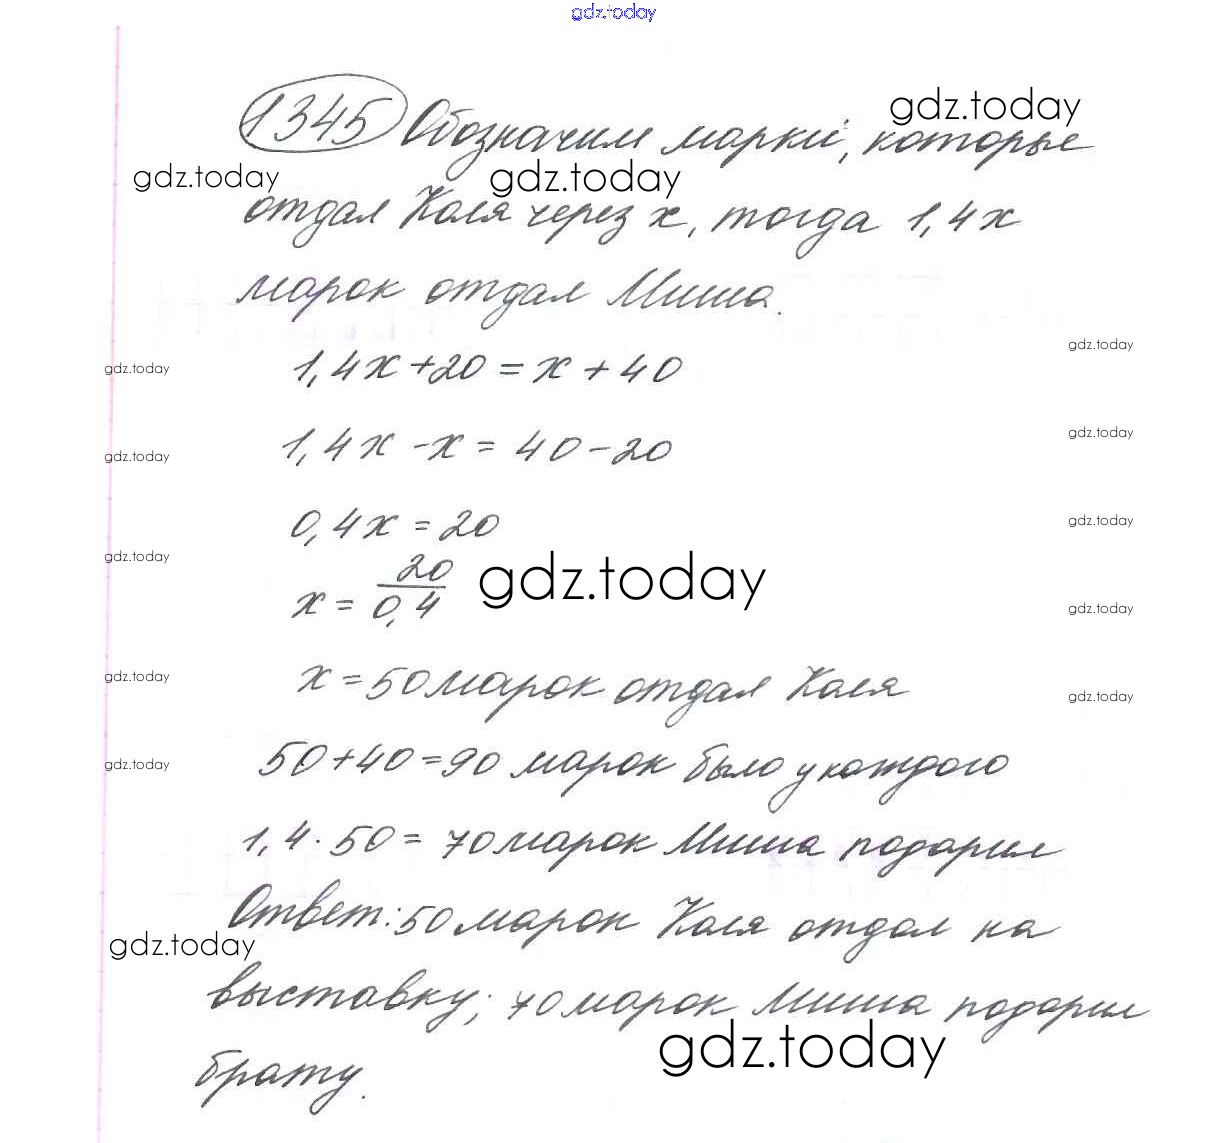 gdz.today
1345 Обозначим марки, которые
gdz.today
gdz.today
gdz.today
отдал Коля через x, тогда 1,4x
марок отдал Миша.
1,4x + 20 = x + 40
gdz.today
gdz.today
1,4x - x = 40 - 20
gdz.today
gdz.today
0,4x = 20
gdz.today
gdz.today
x = 20/0,4
gdz.today
gdz.today
x = 50 марок отдал Коля
gdz.today
gdz.today
50 + 40 = 90 марок было у каждого
gdz.today
1,4 · 50 = 70 марок Миша подарил
Ответ: 50 марок Коля отдал на
gdz.today
выставку; 70 марок Миша подарил
gdz.today
брату.